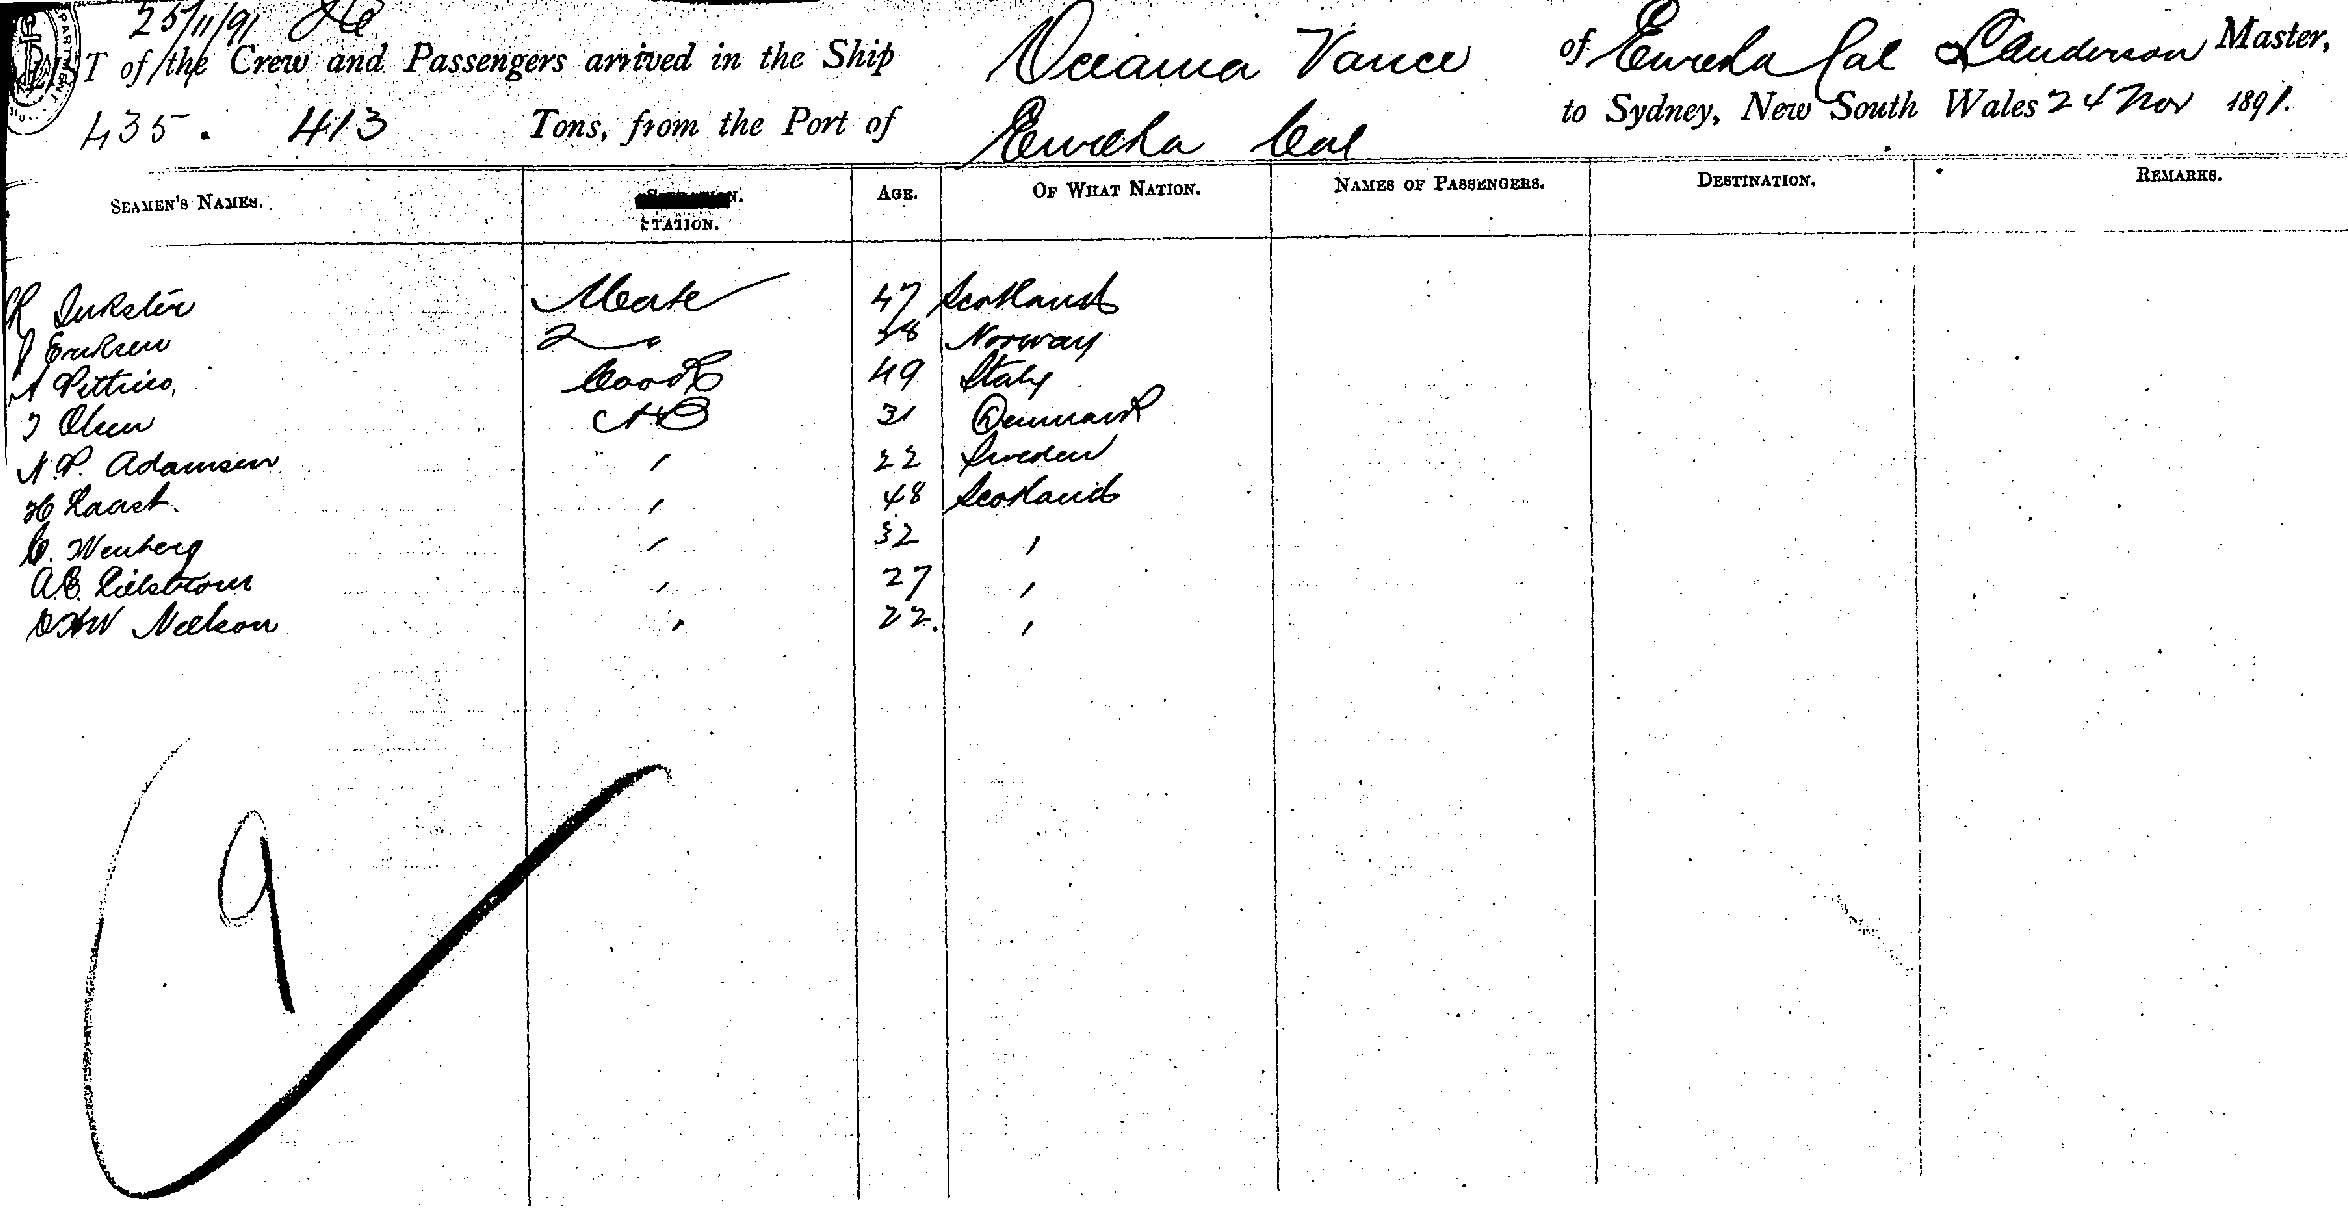 25/11/91
T of the Crew and Passengers arrived in the Ship Oceania Vance of Eureka Cal Anderson Master,
435. 413 Tons, from the Port of Eureka Cal to Sydney, New South Wales 24 Nov 1891.
SEAMEN'S NAMES. STATION. AGE. OF WHAT NATION. NAMES OF PASSENGERS. DESTINATION. REMARKS.
R Inkster Mate 47 Scotland
J Eriksen 2 38 Norway
A Pettino, Cook 49 Italy
T Olsen AB 31 Denmark
N.P. Adamsen ' 22 Sweden
H ' 48 Scotland
C. Wenberg ' 32 '
A.E. Lilstrom ' 27 '
Neelson ' 22. '
9